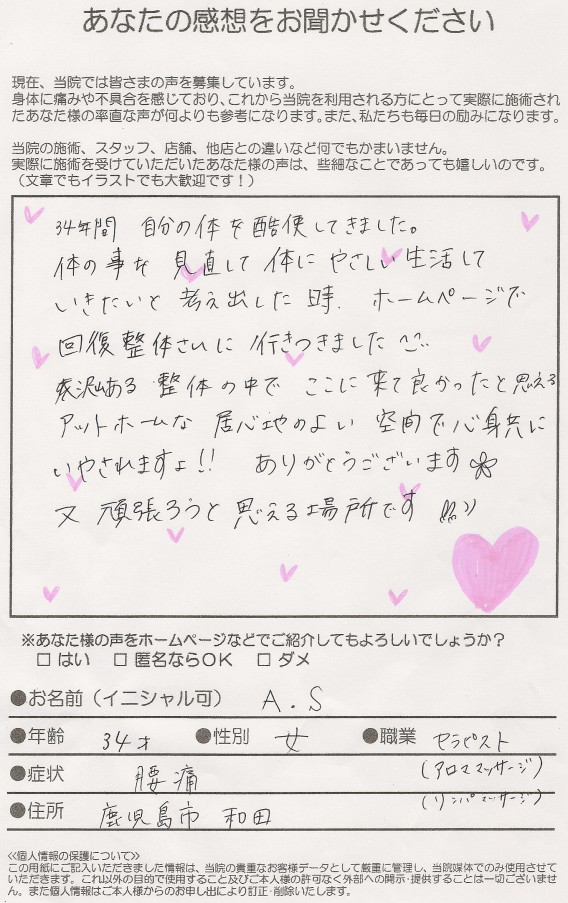 あなたの感想をお聞かせください
現在、当院では皆さまの声を募集しています。
身体に痛みや不具合を感じており、これから当院を利用される方にとって実際に施術され
たあなた様の率直な声が何よりも参考になります。また、私たちも毎日の励みになります。
当院の施術、スタッフ、店舗、他店との違いなど何でもかまいません。
実際に施術を受けていただいたあなた様の声は、些細なことであっても嬉しいのです。
（文章でもイラストでも大歓迎です！）
34年間 自分の体を酷使してきました。
体の事を見直して体にやさしい生活して
いきたいと考え出した時、ホームページで
回復整体さんに行きつきました
沢山ある整体の中でここに来て良かったと思える
アットホームな居心地のよい空間で心身共に
いやされますよ!! ありがとうございます
又頑張ろうと思える場所です
※あなた様の声をホームページなどでご紹介してもよろしいでしょうか？
□ はい □ 匿名ならOK □ ダメ
●お名前（イニシャル可） A.S
●年齢 34才 ●性別 女 ●職業 セラピスト
(アロママッサージ)
●症状 腰痛
(リンパマッサージ)
●住所 鹿児島市 和田
≪個人情報の保護について≫
この用紙にご記入いただきました情報は、当院の貴重なお客様データとして厳重に管理し、当院媒体でのみ使用させて
いただきます。これ以外の目的で使用すること及びご本人様の許可なく外部への開示・提供することは一切ございませ
ん。また個人情報はご本人様からのお申し出により訂正・削除いたします。